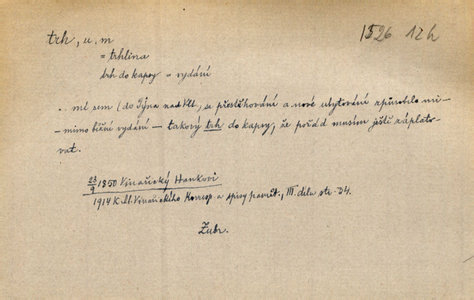 1526 12 h
trh, u, m
= trhlina
trh do kapsy = vydání
.. mé sem (do Týna nad Vlt, se přestěhování a nové ubytování způsobilo mi-
mimo běžné vydání — takový trh do kapsy, že pořád musím ještě záplato-
vat.
23/9 1850 Vinařický Hankovi
1914 K. Al. Vinařického Koresp. a spisy pamět., III. díla str. 34.
Žubr.